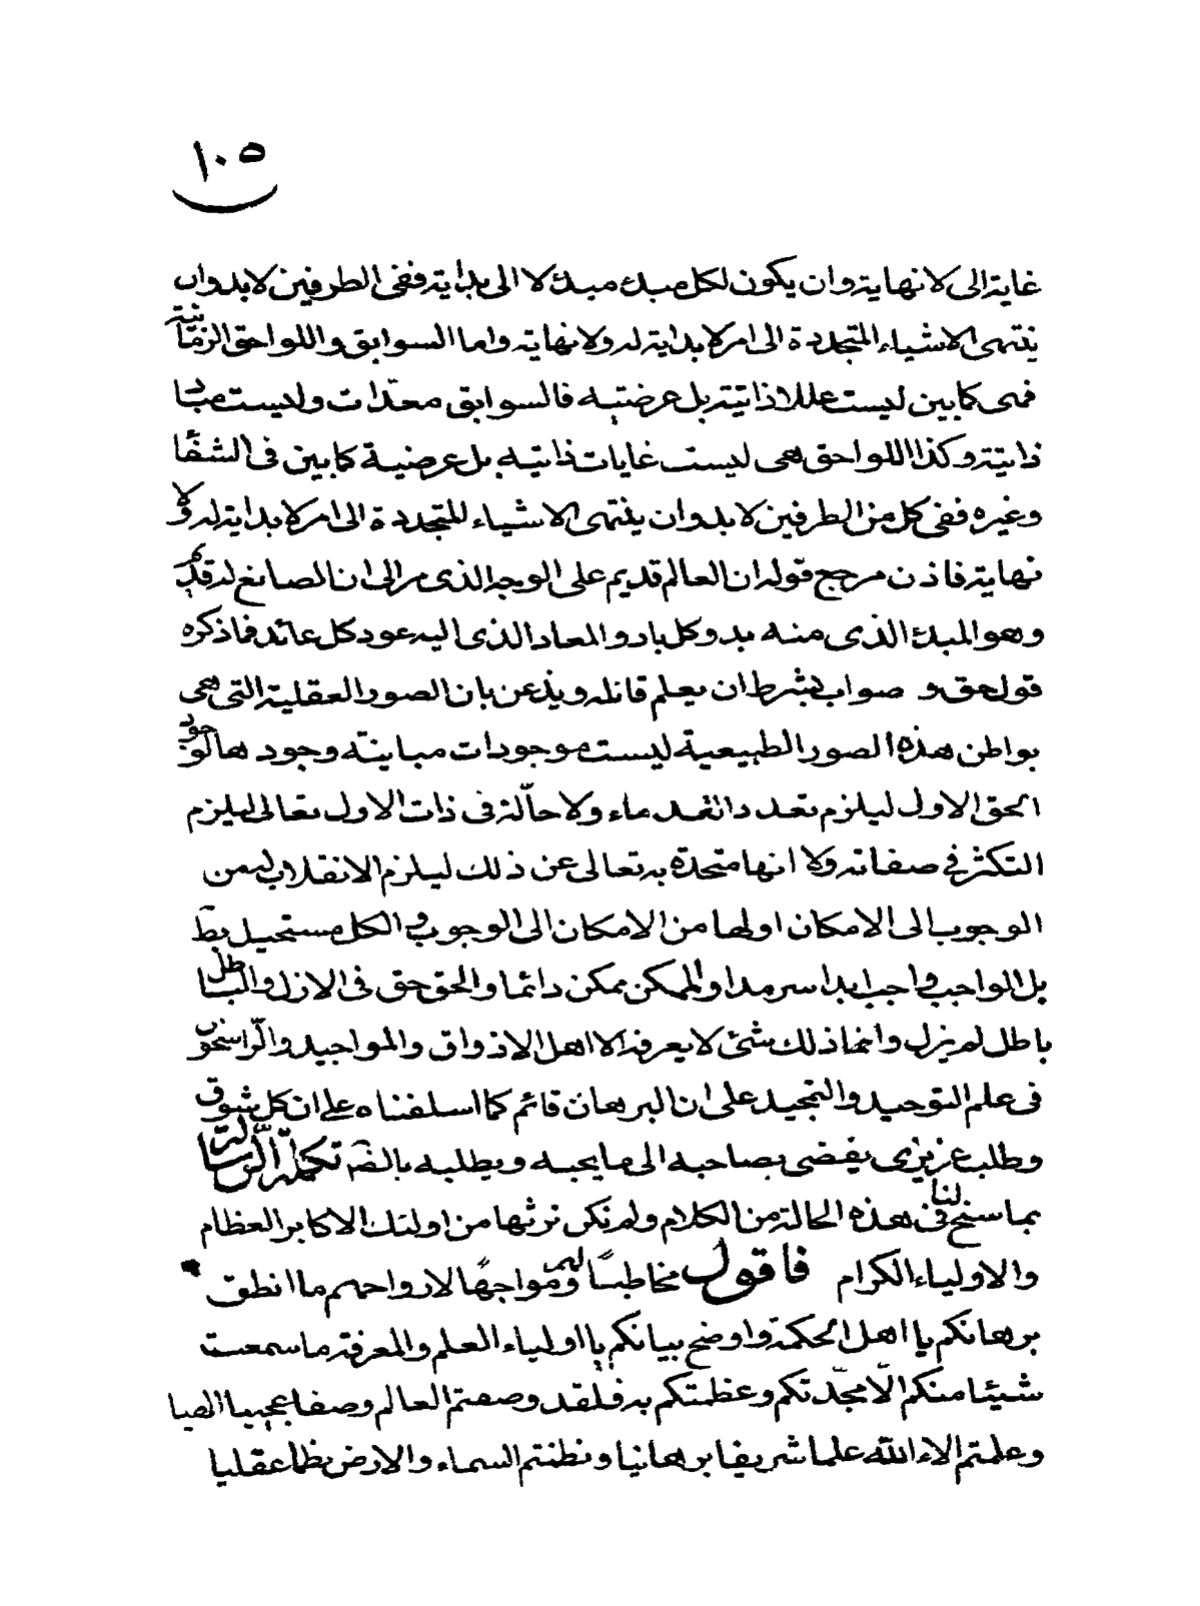 ١٠٥
غاية الى لا نهاية وان يكون لكل مبدء مبدء لا الى بداية ففى الطرفين لابد وان
ينتهى الاشياء المتجددة الى امر لا بداية له ولا نهاية واما السوابق واللواحق الزمانية
فهى كما بين ليست عللا ذاتية بل عرضية فالسوابق معدّات وليست مبادى
ذاتية وكذا اللواحق هى ليست غايات ذاتية بل عرضية كما بين فى الشفا
وغيره ففى كل من الطرفين لابد وان ينتهى الاشياء المتجددة الى امر لا بداية له ولا
نهاية فاذن مرجع قوله ان العالم قديم على الوجه الذى مر الى ان الصانع له قديم
وهو المبدء الذى منه بدو كل باد والمعاد الذى اليه عود كل عائد فماذكره
قول حق و صواب بشرط ان يعلم قائله ويذعن بان الصور العقلية التى هى
بواطن هذه الصور الطبيعية ليست موجودات مباينة وجودها لوجود
الحق الاول ليلزم تعدد القدماء ولا حالّة فى ذات الاول تعالى ليلزم
التكثر فى صفاته ولا انها متحدة به تعالى عن ذلك ليلزم الانقلاب له من
الوجوب الى الامكان او لها من الامكان الى الوجوب والكل مستحيل بط
بل الواجب واجب ابدا سرمدا والممكن ممكن دائما والحق حق فى الازل والباطل
باطل لم يزل وانما ذلك شئ لا يعرفه الا اهل الاذواق والمواجيد والراسخون
فى علم التوحيد والتمجيد على ان البرهان قائم كما اسلفناه على ان كل شوق
وطلب غريزى يفضى بصاحبه الى ما يحبه ويطلبه بالضـ تكملة الرسالة
بما سنح لنا فى هذه الحالة من الكلام ولم نكن نرثها من اولئك الاكابر العظام
والاولياء الكرام فاقول مخاطبًا لهم ومواجهًا لارواحهم ما انطق
برهانكم يا اهل الحكمة واوضح بيانكم يا اولياء العلم والمعرفة ما سمعت
شيئا منكم الّا مجّدتكم وعظمتكم به فلقد وصفتم العالم وصفا عجيبا الهيا
وعلمتم الاء الله علما شريفا برهانيا ونظمتم السماء والارض نظما عقليا